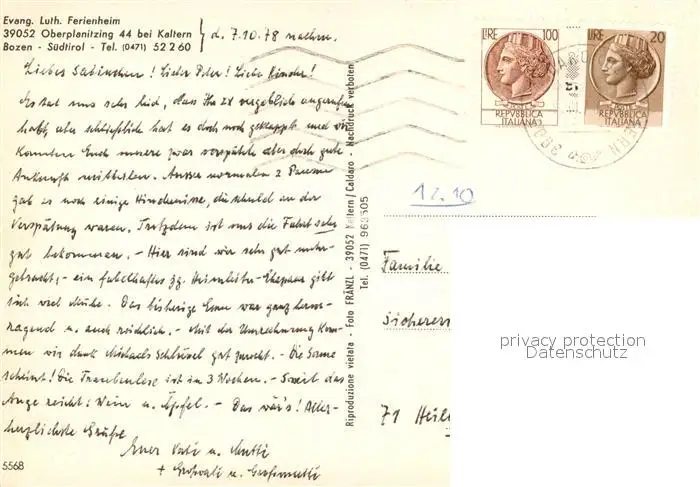 Evang. Luth. Ferienheim
39052 Oberplanitzing 44 bei Kaltern
Bozen - Südtirol - Tel. (0471) 52 2 60
d. 7.10.78 nachm.
Liebes Sabinchen! Lieber Peter! Liebe Kinder!
Es tat uns sehr leid, dass Ihr 2x vergeblich angerufen
habt, aber schließlich hat es doch noch geklappt und wir
konnten Euch unsere zwar verspätete aber doch gute
Ankunft mitteilen. Ausser normalen 2 Pausen
gab es noch einige Hindernisse, die schuld an der
Verspätung waren. Trotzdem ist uns die Fahrt sehr
gut bekommen. - Hier sind wir sehr gut unter-
gebracht, - ein fabelhaftes jg. Heimleiter-Ehepaar gibt
sich viel Mühe. Das bisherige Essen war ganz hervor-
ragend u. auch reichlich. - Mit der Umrechnung kom-
men wir dank Michaels Schlüssel gut zurecht. - Die Sonne
scheint! Die Traubenlese ist in 3 Wochen. - Soweit das
Auge reicht: Wein u. Äpfel. - Das wär's! Aller-
herzlichste Grüße
Euer Vati u. Mutti
+ Großvati u. Großmutti
5568
Riproduzione vietata - Foto FRÄNZL - 39052 Kaltern / Caldaro - Nachdruck verboten
Tel. (0471) 963505
LIRE 100
REPVBBLICA
ITALIANA
LIRE 20
REPVBBLICA
ITALIANA
12.10
Familie
71 Heil
privacy protection
Datenschutz